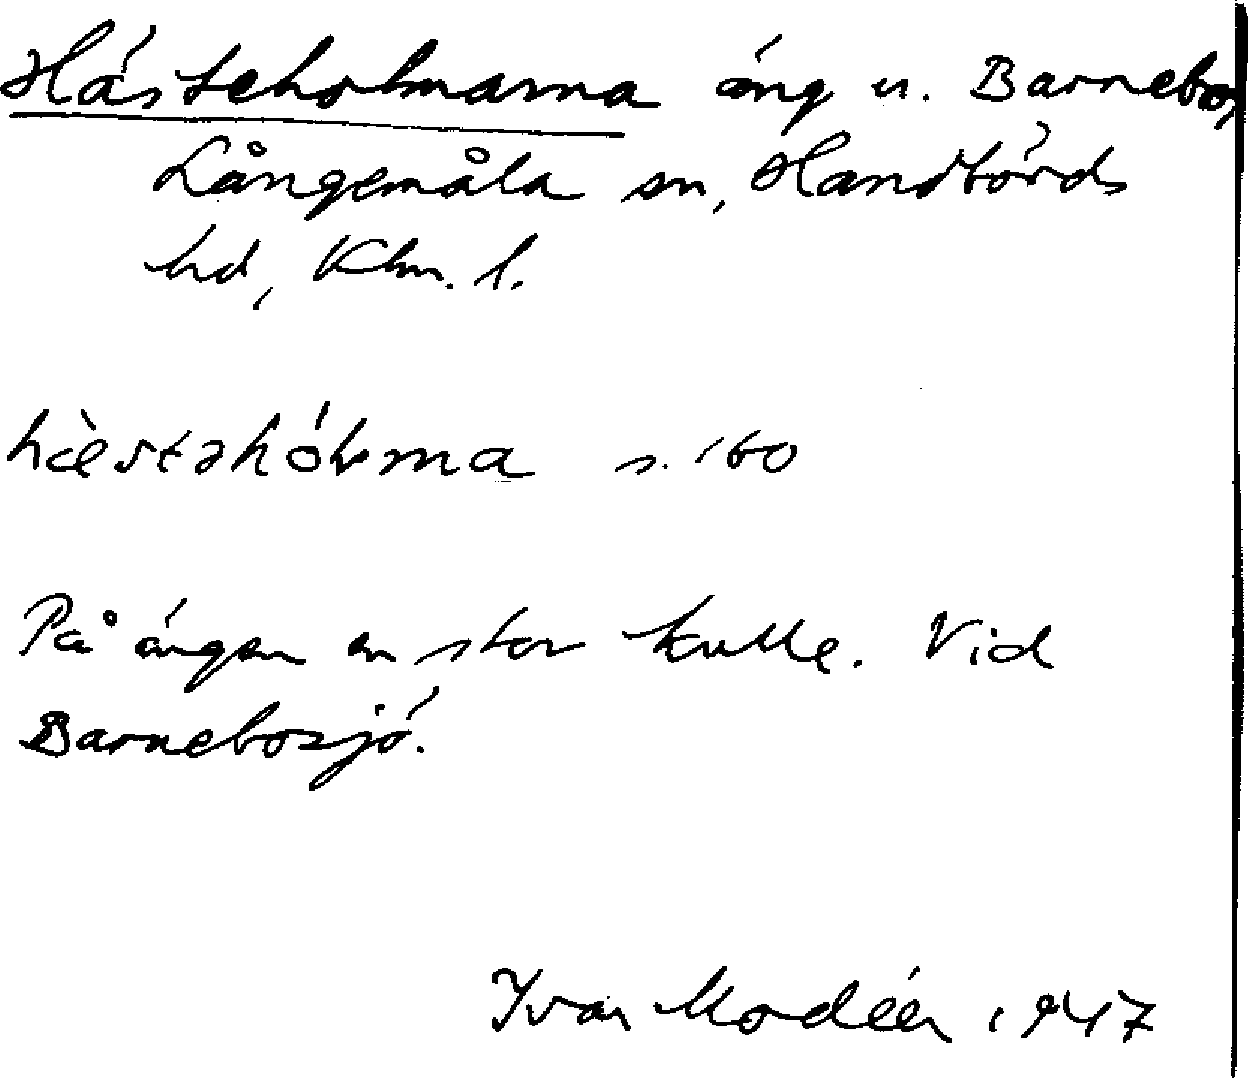 Hästeholmarna äng u. Barnebo,
Långemåla sn, Handbörds
hd, Klm. l.
hæ̀stəhól̵ma s. 160
På ängen en stor kulle. Vid
Barnebosjö.
Ivar Modéer 1947